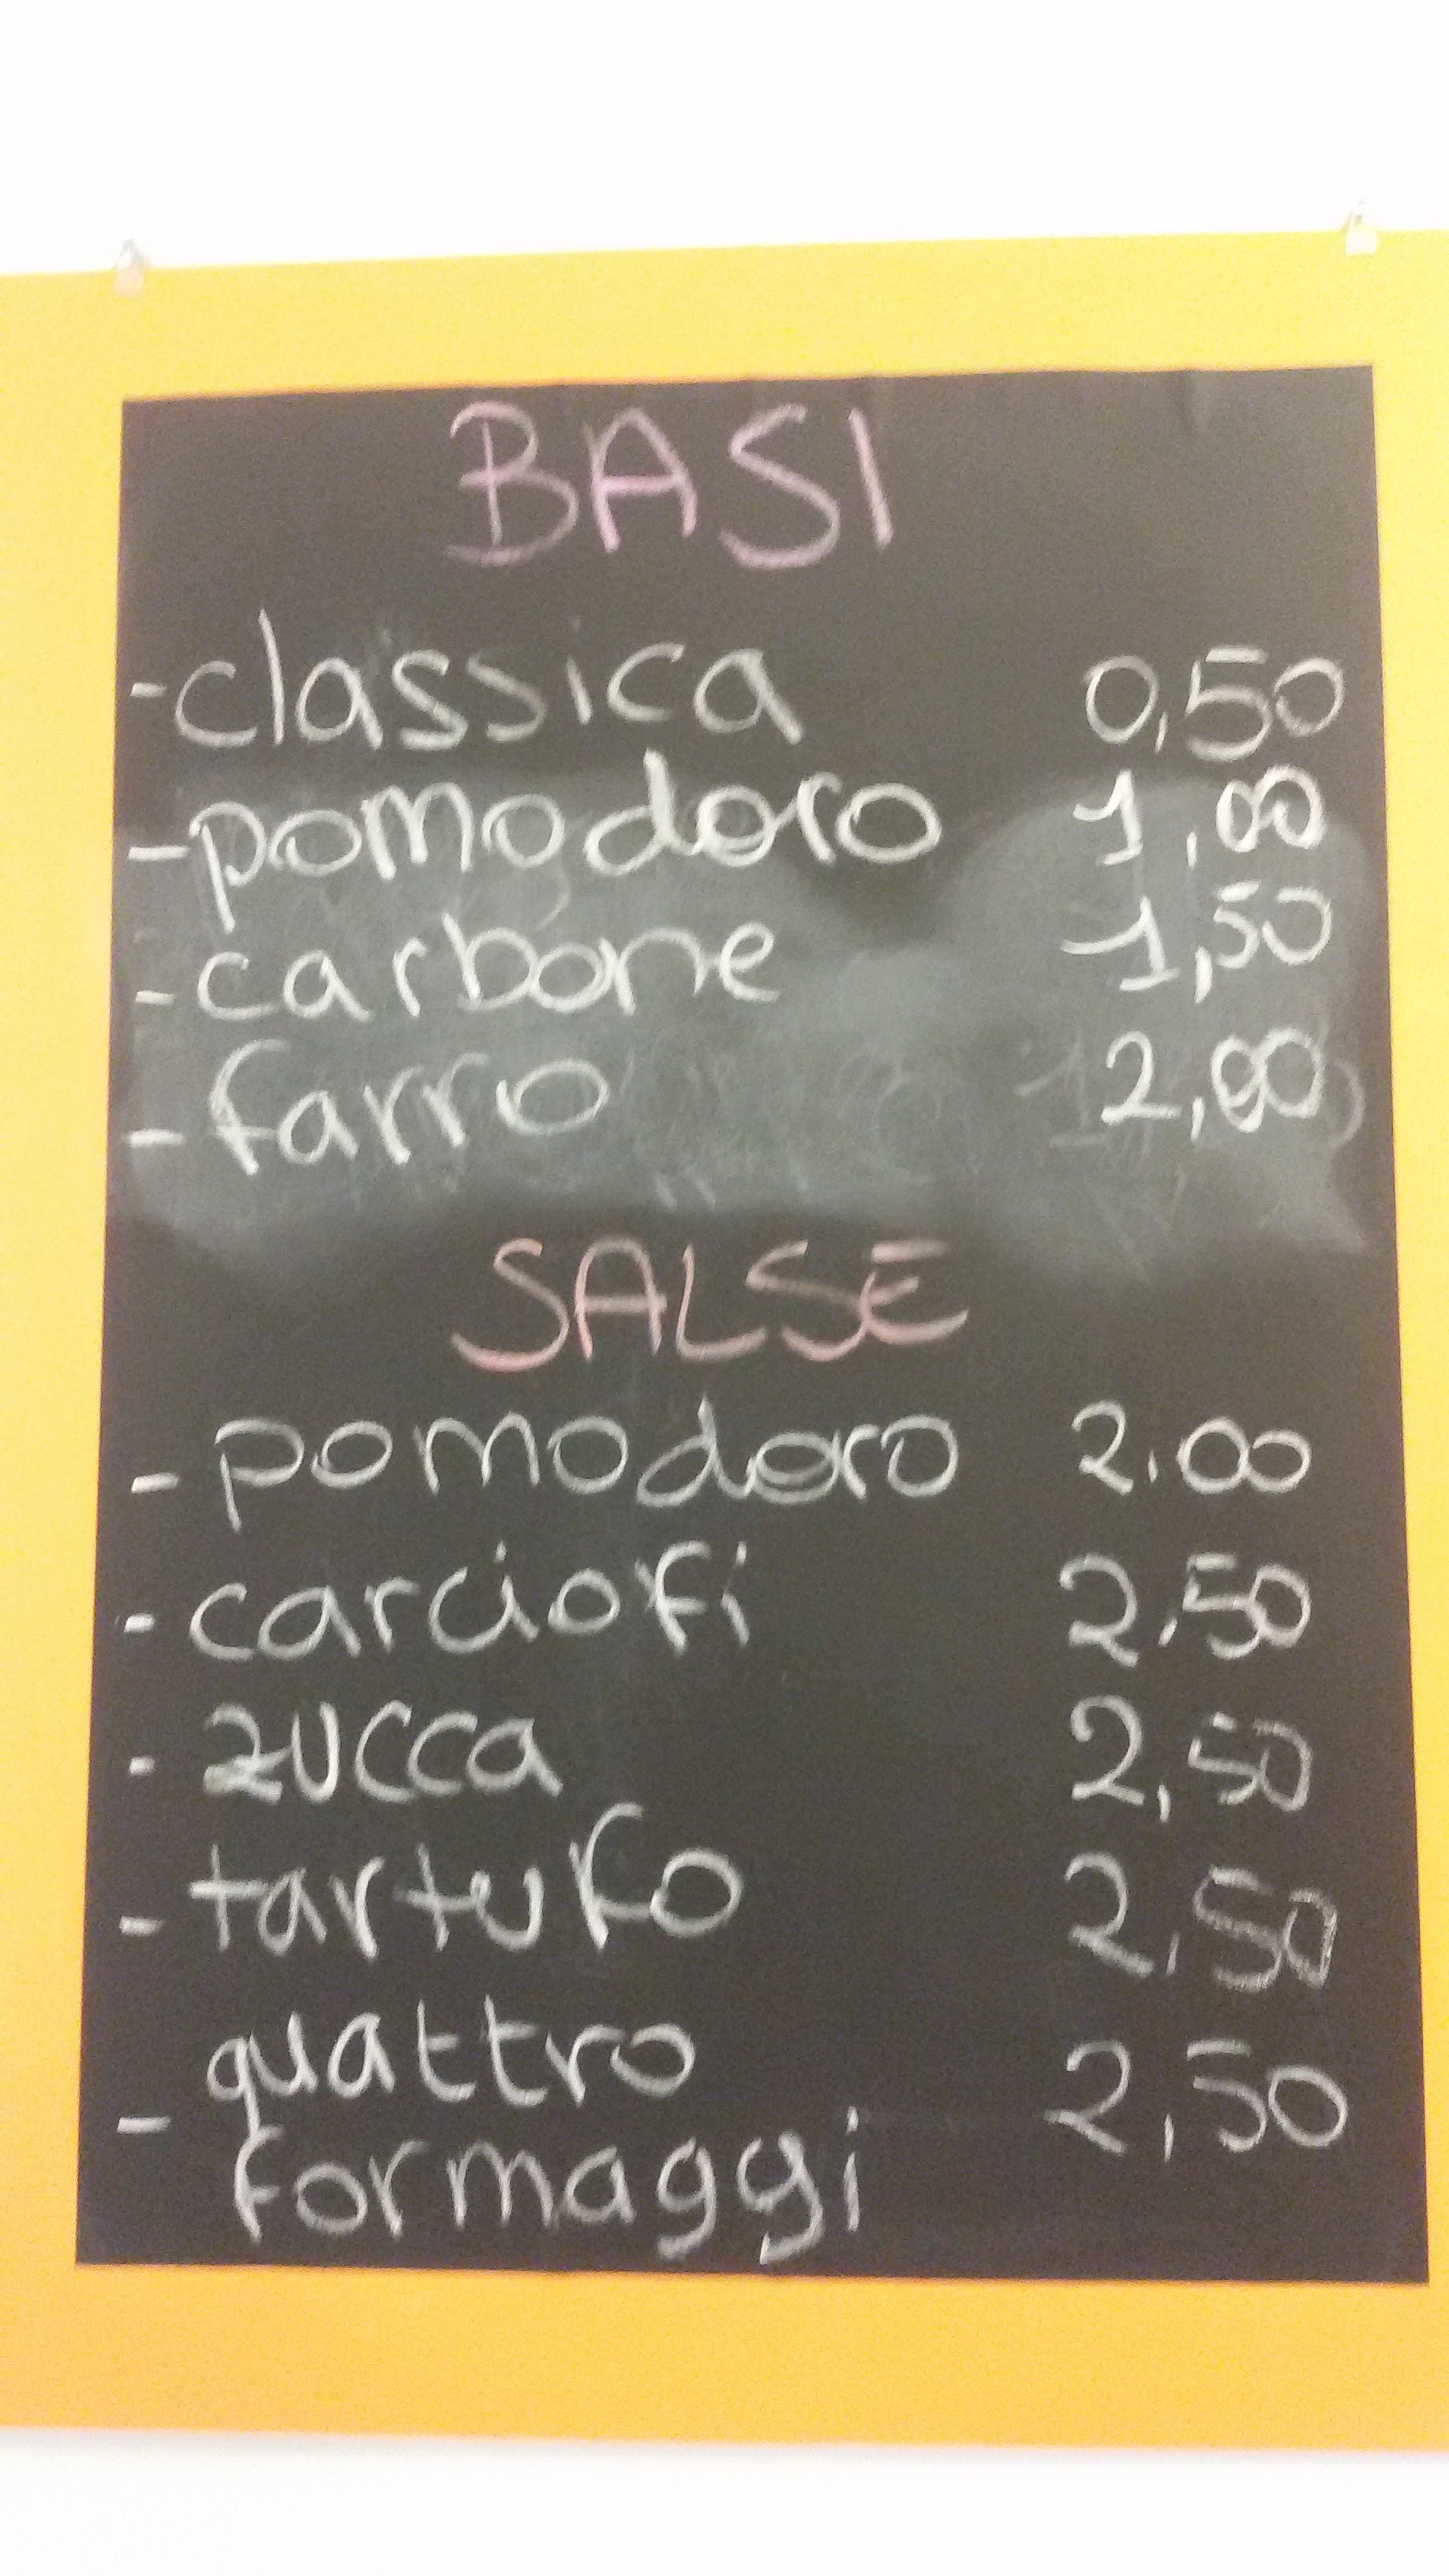 BASI
- classica 0,50
- pomodoro 1,00
- carbone 1,50
- farro 2,00
SALSE
- pomodoro 2.00
- carciofi 2,50
- zucca 2,50
- tartufo 2,50
- quattro 2,50
formaggi